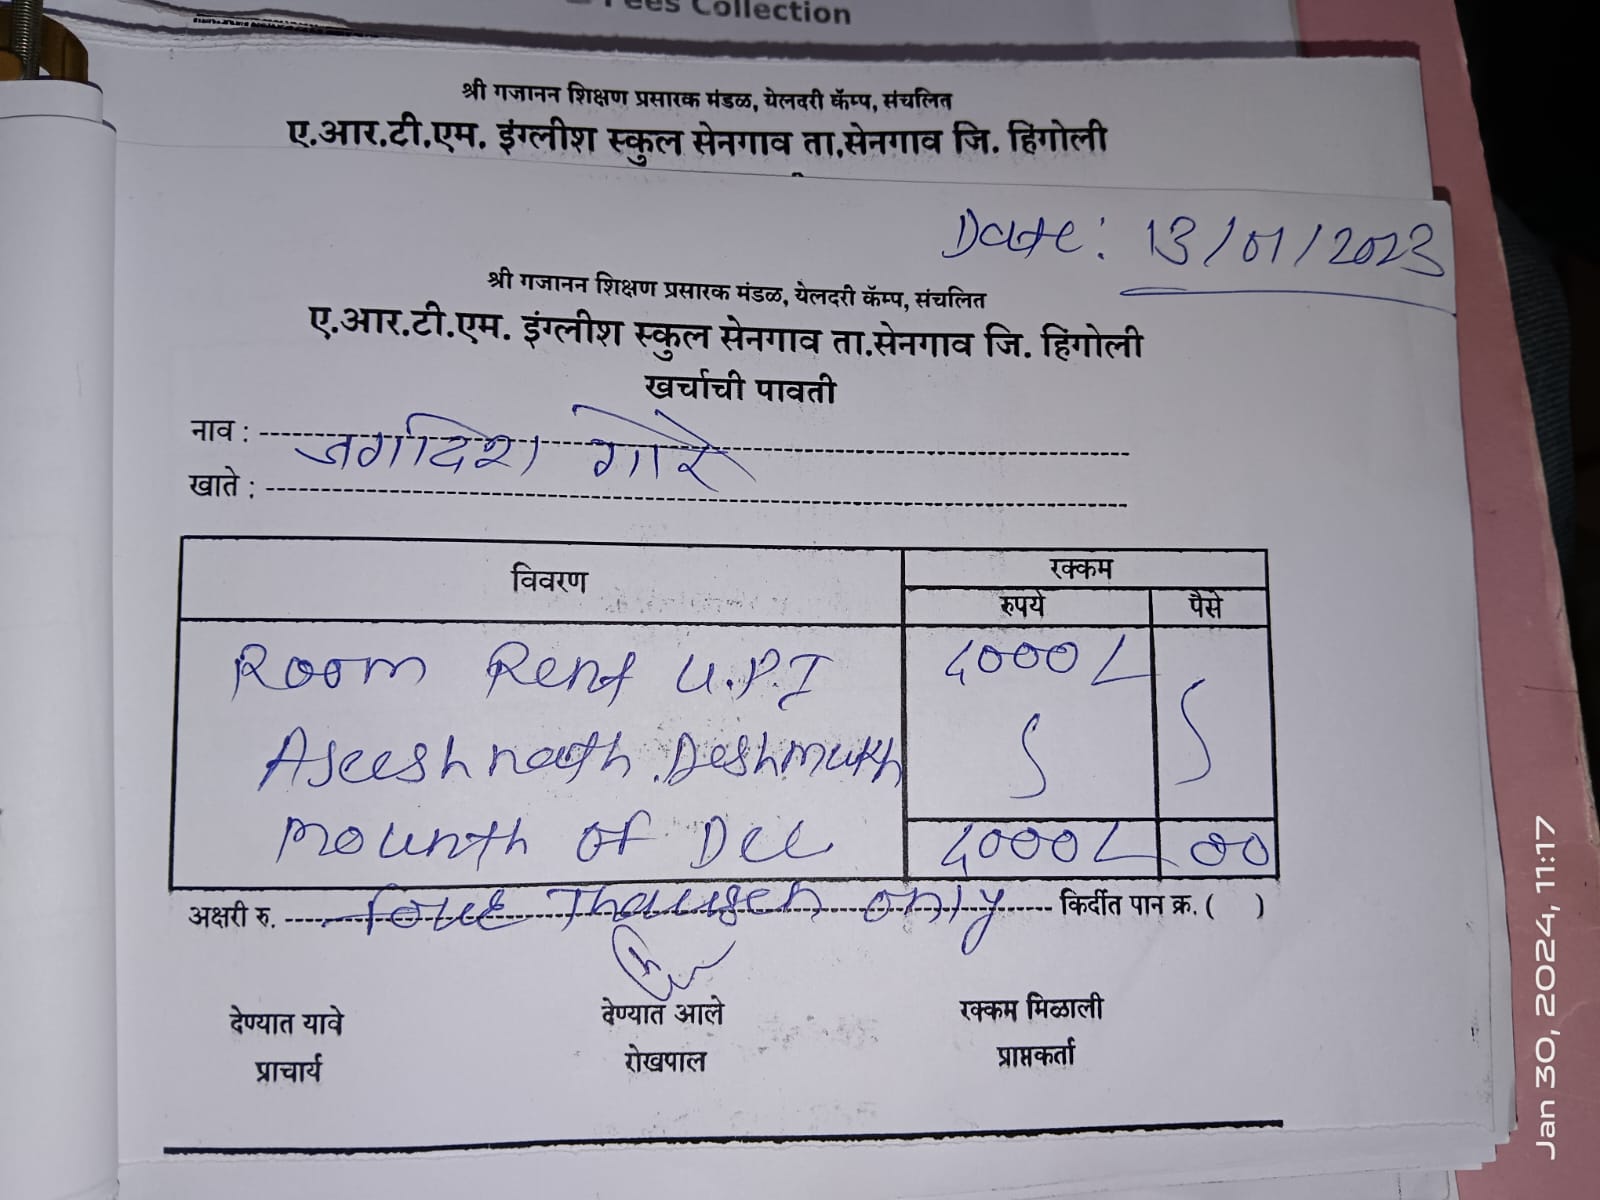 Fees Collection
श्री गजानन शिक्षण प्रसारक मंडळ, येलदरी कॅम्प, संचलित
ए.आर.टी.एम. इंग्लीश स्कुल सेनगाव ता.सेनगाव जि. हिंगोली
Date: 13/01/2023
श्री गजानन शिक्षण प्रसारक मंडळ, येलदरी कॅम्प, संचलित
ए.आर.टी.एम. इंग्लीश स्कुल सेनगाव ता.सेनगाव जि. हिंगोली
खर्चाची पावती
नाव : जगदिश गोरे
खाते :
विवरण रक्कम
रुपये पैसे
Room Rent U.P.I 4000/-
Aseeshnath Deshmukh
Mounth of Dec 4000/- 00
अक्षरी रु. foue Thausen only किर्दीत पान क्र. ( )
देण्यात यावे देण्यात आले रक्कम मिळाली
प्राचार्य रोखपाल प्राप्तकर्ता
Jan 30, 2024, 11:17